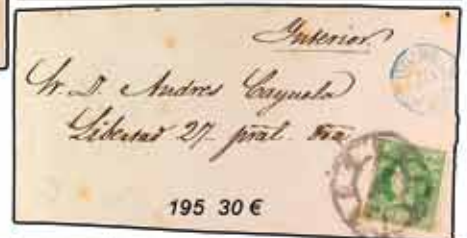 Interior
Sr. D. Andres Cayuela
Libertad 27 pral.
195 30 €